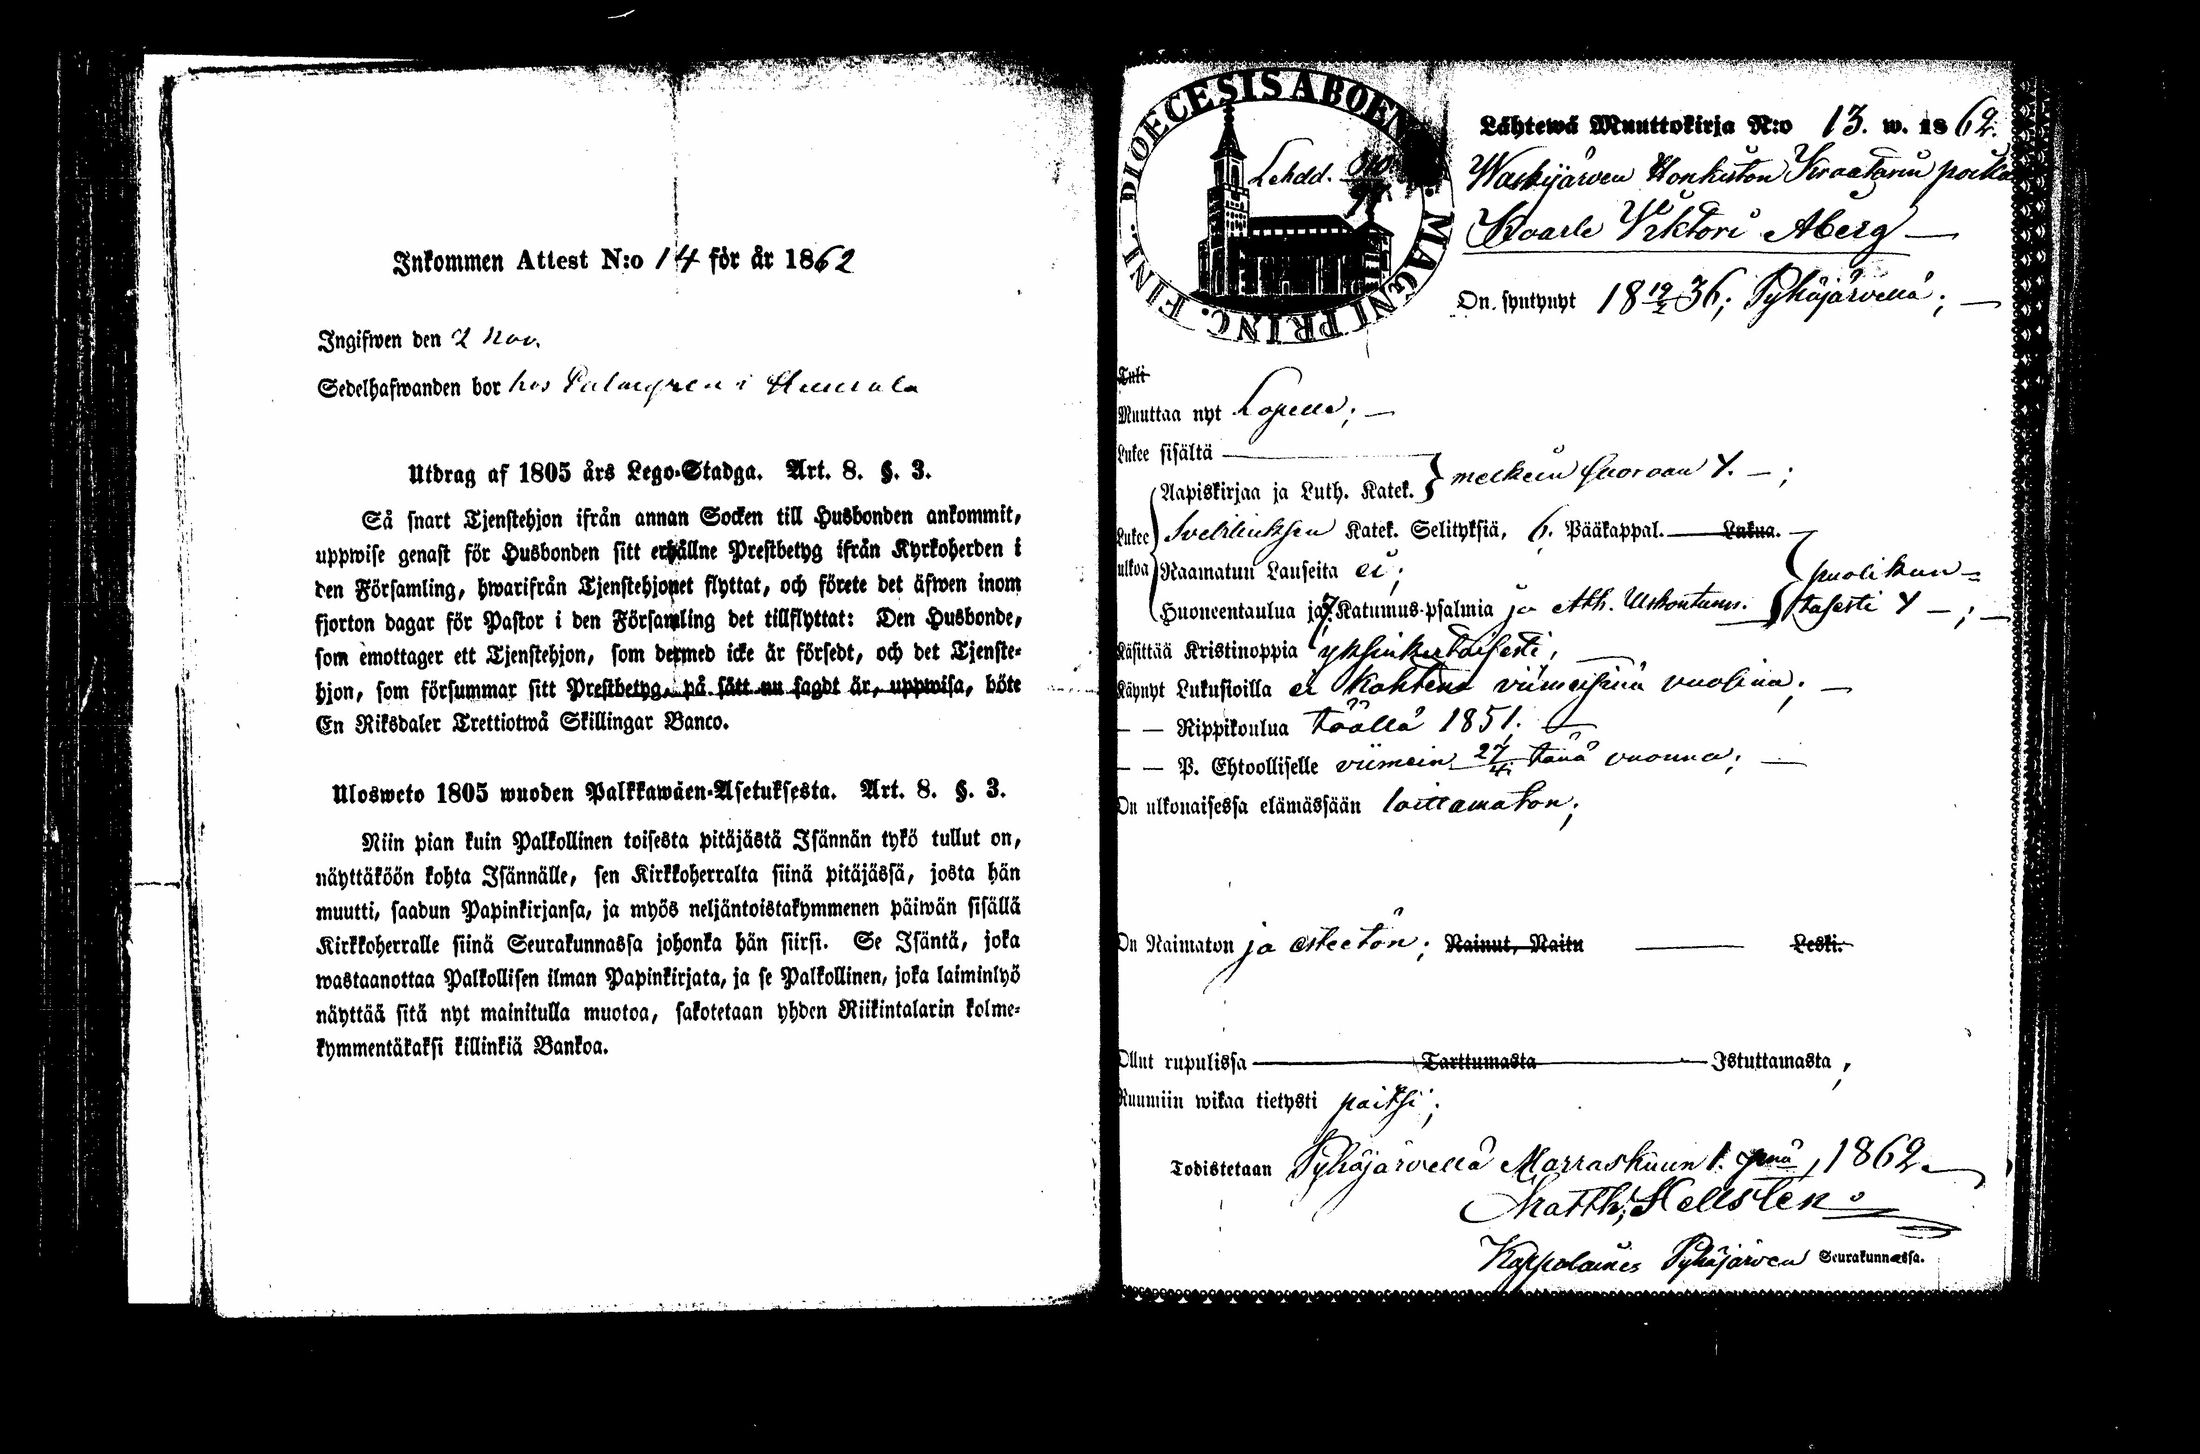 Inkommen Attest N:o 14 för år 1862
Ingifwen den 2 Nov.
Sedelhafwanden bor hos Palmgren i
Utdrag af 1805 års Lego-Stadga. Art. 8. §. 3.
Så snart Tjenstehjon ifrån annan Socken till Husbonden ankommit,
uppwise genast för Husbonden sitt erhållne Prestbetyg ifrån Kyrkoherden i
den Församling, hwarifrån Tjenstehjonet flyttat, och förete det äfwen inom
fjorton dagar för Pastor i den Församling det tillflyttat: Den Husbonde,
som emottager ett Tjenstehjon, som dermed icke är försedt, och det Tjenste-
hjon, som försummar sitt Prestbetyg, på sätt nu sagdt är, uppwisa, böte
En Riksdaler Trettiotwå Skillingar Banco.
Ulosweto 1805 wuoden Palkkawäen-Asetuksesta. Art. 8. §. 3.
Niin pian kuin Palkollinen toisesta pitäjästä Isännän tykö tullut on,
näyttäköön kohta Isännälle, sen Kirkkoherralta siinä pitäjässä, josta hän
muutti, saadun Papinkirjansa, ja myös neljäntoistakymmenen päiwän sisällä
Kirkkoherralle siinä Seurakunnassa johonka hän siirsi. Se Isäntä, joka
wastaanottaa Palkollisen ilman Papinkirjata, ja se Palkollinen, joka laiminlyö
näyttää sitä nyt mainitulla muotoa, sakotetaan yhden Riikintalarin kolme-
kymmentäkaksi killinkiä Bankoa.
DIOECESIS ABOEN. MAGNI PRINC. FINL.
Lehdd.
Lähtewä Muuttokirja N:o 13. w. 1862.
Waskijärven Honkiston Kraatarin poika
Kaarle Viktori Åberg —
On syntynyt 18 19/2 36; Pyhäjärvellä; —
Tuli
Muuttaa nyt Lopelle; —
Lukee sisältä
Aapiskirjaa ja Luth. Katek. melkein suoraan Y. — ;
Lukee ulkoa Svebiliuksen Katek. Selityksiä, 6. Pääkappal. — Lukua.
Raamatun Lauseita ei;
Huoneentaulua ja 7 Katumus-psalmia ja Ath. Uskontunn. puolikun-
tasesti Y — ; —
Käsittää Kristinoppia yksinkertaisesti;
Käynyt Lukusioilla ei kahtena viimeisinä vuosina; —
— — Rippikoulua täällä 1851. —
— — P. Ehtoolliselle viimein 27/4 tänä vuonna; —
On ulkonaisessa elämässään laittamaton;
On Naimaton ja esteetön; Nainut, Naitu — Leski.
Ollut rupulissa — Tarttumasta — Istuttamasta;
Ruumiin wikaa tietysti paitsi;
Todistetaan Pyhäjärvellä Marraskuun 1. pnä, 1862.
Matth. Hellsten
Kappalainen Pyhäjärven Seurakunnassa.